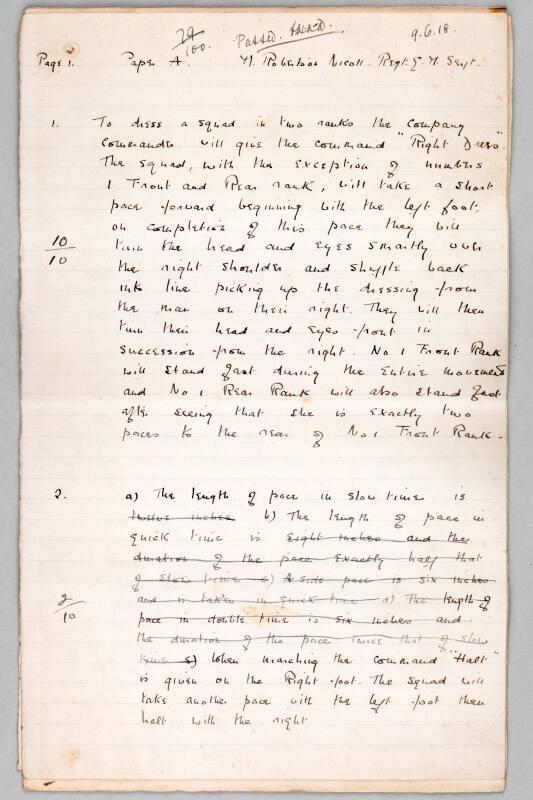 29/100. Passed. 9.6.18.
Page 1. Paper A. M. Robertson Nicoll. Regt. Q. M. Sergt.
1. To dress a squad in two ranks the Company
Commander will give the command "Right Dress".
The squad, with the exception of numbers
1 Front and Rear rank, will take a short
pace forward beginning with the left foot,
on completion of this pace they will
turn the head and eyes smartly over
10/10
the right shoulder and shuffle back
into line picking up the dressing from
the man on their right. They will then
turn their head and eyes front in
succession from the right. No 1 Front Rank
will stand fast during the entire movement
and No 1 Rear Rank will also stand fast
after seeing that she is exactly two
paces to the rear of No 1 Front Rank.
2. a) The length of pace in slow time is
twelve inches b) The length of pace in
quick time is eight inches and the
duration of the pace exactly half that
of slow time c) A side pace is six inches
and is taken in quick time d) The length of
2/10
pace in double time is six inches and
the duration of the pace twice that of slow
time e) When marching the command "Halt"
is given on the Right foot. The squad will
take another pace with the left foot then
halt with the right